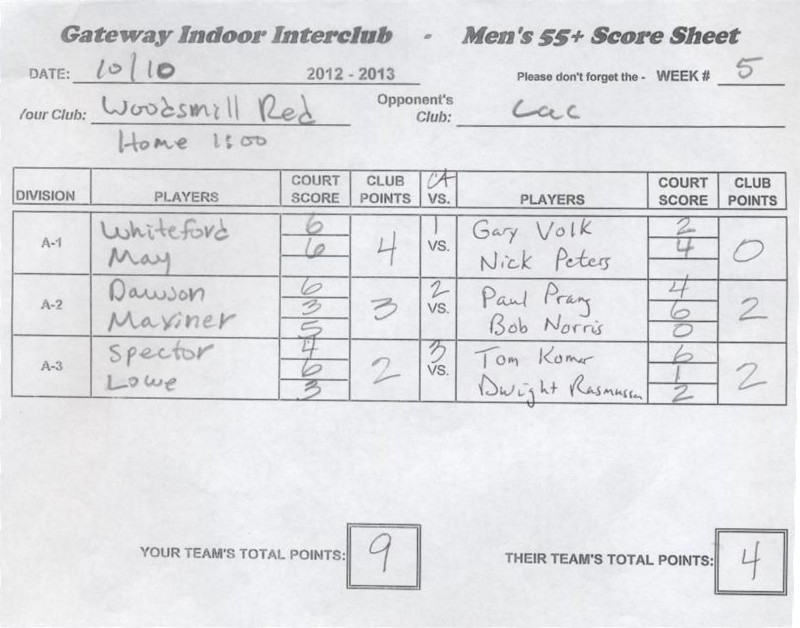 Gateway Indoor Interclub - Men's 55+ Score Sheet
DATE: 10/10 2012 - 2013 Please don't forget the - WEEK # 5
Your Club: Woodsmill Red Opponent's Club: Lac
Home 1:00
DIVISION PLAYERS COURT SCORE CLUB POINTS CT VS. PLAYERS COURT SCORE CLUB POINTS
A-1 Whiteford 6 4 1 VS. Gary Volk 2 0
May 6 Nick Peters 4
A-2 Dawson 6 3 2 VS. Paul Prang 4 2
Mariner 3 Bob Norris 6
5 0
A-3 Spector 4 2 3 VS. Tom Komar 6 2
Lowe 6 Dwight Rasmussen 1
3 2
YOUR TEAM'S TOTAL POINTS: 9 THEIR TEAM'S TOTAL POINTS: 4